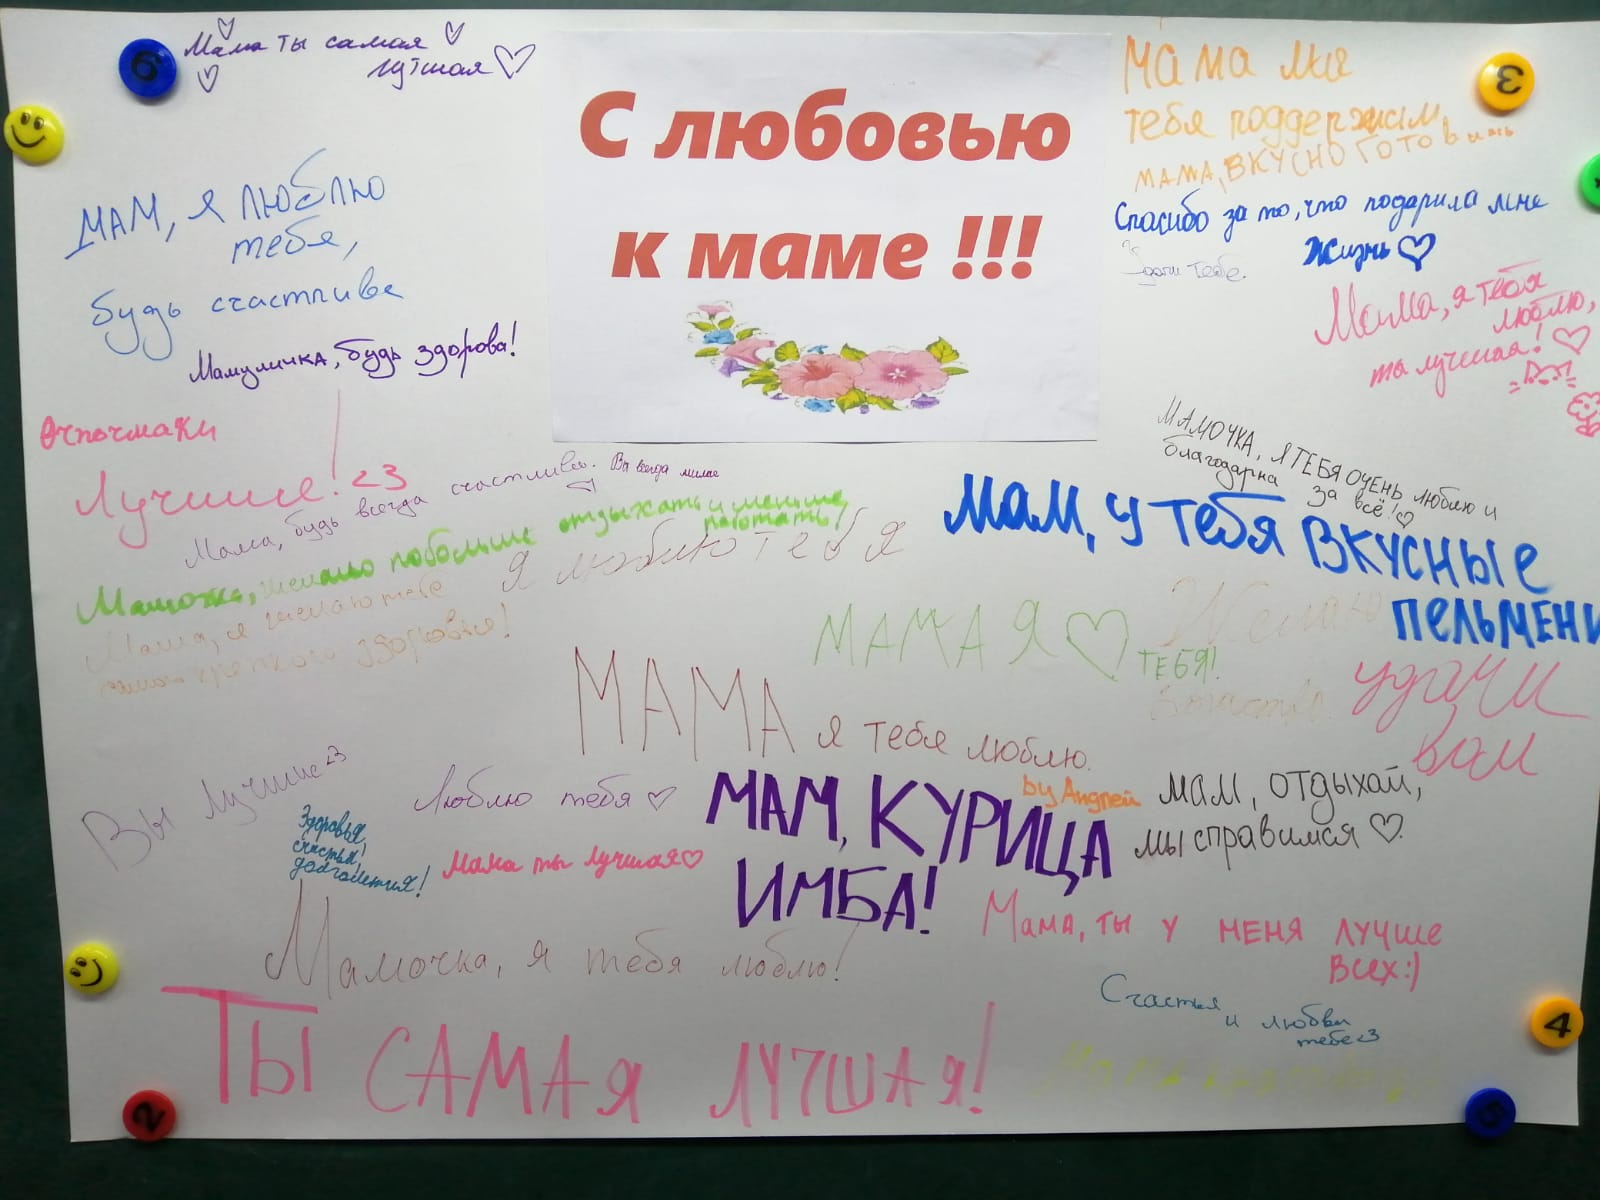 Мама ты самая
лутшая
С любовью
к маме !!!
МАМ, Я ЛЮБЛЮ
тебя,
будь счастлива
Мамуличка, будь здорова!
Очпочмаки
Лучшие! <3
Мама, будь всегда счастлива. Вы всегда милая
Мамочка, желаю побольше отдыхать и меньше
работать!
я люблю тебя
Мама, я желаю тебе
самого крепкого здоровья!
Мама мы
тебя поддержим
МАМА, ВКУСНО ГОТОВишь
Спасибо за то, что подарила мне
жизнь
Удачи тебе.
Мама, я тебя
люблю,
ты лучшая!
МАМОЧКА, Я ТЕБЯ ОЧЕНЬ люблю и
благодарна за всё!
Мам, у тебя вкусные
пельмени
МАМА Я
ТЕБЯ!
Желаю
богатства
удачи
вам
МАМА я тебя люблю.
Вы лучшие <3
Люблю тебя
Здоровья,
счастья,
долголетия!
Мама ты лучшая
МАМ, КУРИЦА
ИМБА!
by Андрей
мам, отдыхай,
мы справимся
Мама, ты у меня лучше
всех:)
Мамочка, я тебя люблю!
Счастья
и любви
тебе <3
ТЫ САМАЯ ЛУЧШАЯ!
Мама
6
3
2
4